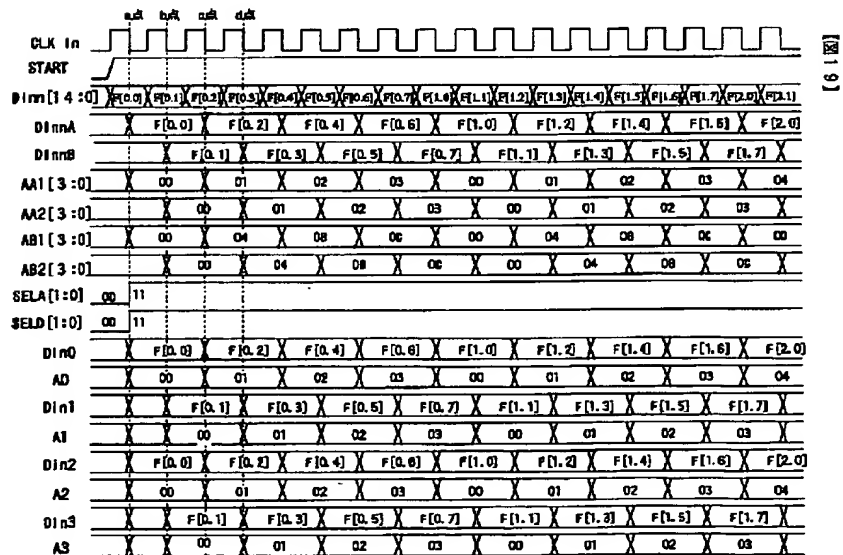 【図19】
CLK In
START
Dinn[14:0] F[0.0] F[0.1] F[0.2] F[0.3] F[0.4] F[0.5] F[0.6] F[0.7] F[1.0] F[1.1] F[1.2] F[1.3] F[1.4] F[1.5] F[1.6] F[1.7] F[2.0] F[2.1]
DinnA F[0.0] F[0.2] F[0.4] F[0.6] F[1.0] F[1.2] F[1.4] F[1.6] F[2.0]
DinnB F[0.1] F[0.3] F[0.5] F[0.7] F[1.1] F[1.3] F[1.5] F[1.7]
AA1[3:0] 00 01 02 03 00 01 02 03 04
AA2[3:0] 00 01 02 03 00 01 02 03
AB1[3:0] 00 04 08 0C 00 04 08 0C 00
AB2[3:0] 00 04 08 0C 00 04 08 0C
SELA[1:0] 00 11
SELD[1:0] 00 11
Din0 F[0.0] F[0.2] F[0.4] F[0.6] F[1.0] F[1.2] F[1.4] F[1.6] F[2.0]
A0 00 01 02 03 00 01 02 03 04
Din1 F[0.1] F[0.3] F[0.5] F[0.7] F[1.1] F[1.3] F[1.5] F[1.7]
A1 00 01 02 03 00 01 02 03
Din2 F[0.0] F[0.2] F[0.4] F[0.6] F[1.0] F[1.2] F[1.4] F[1.6] F[2.0]
A2 00 01 02 03 00 01 02 03 04
Din3 F[0.1] F[0.3] F[0.5] F[0.7] F[1.1] F[1.3] F[1.5] F[1.7]
A3 00 01 02 03 00 01 02 03